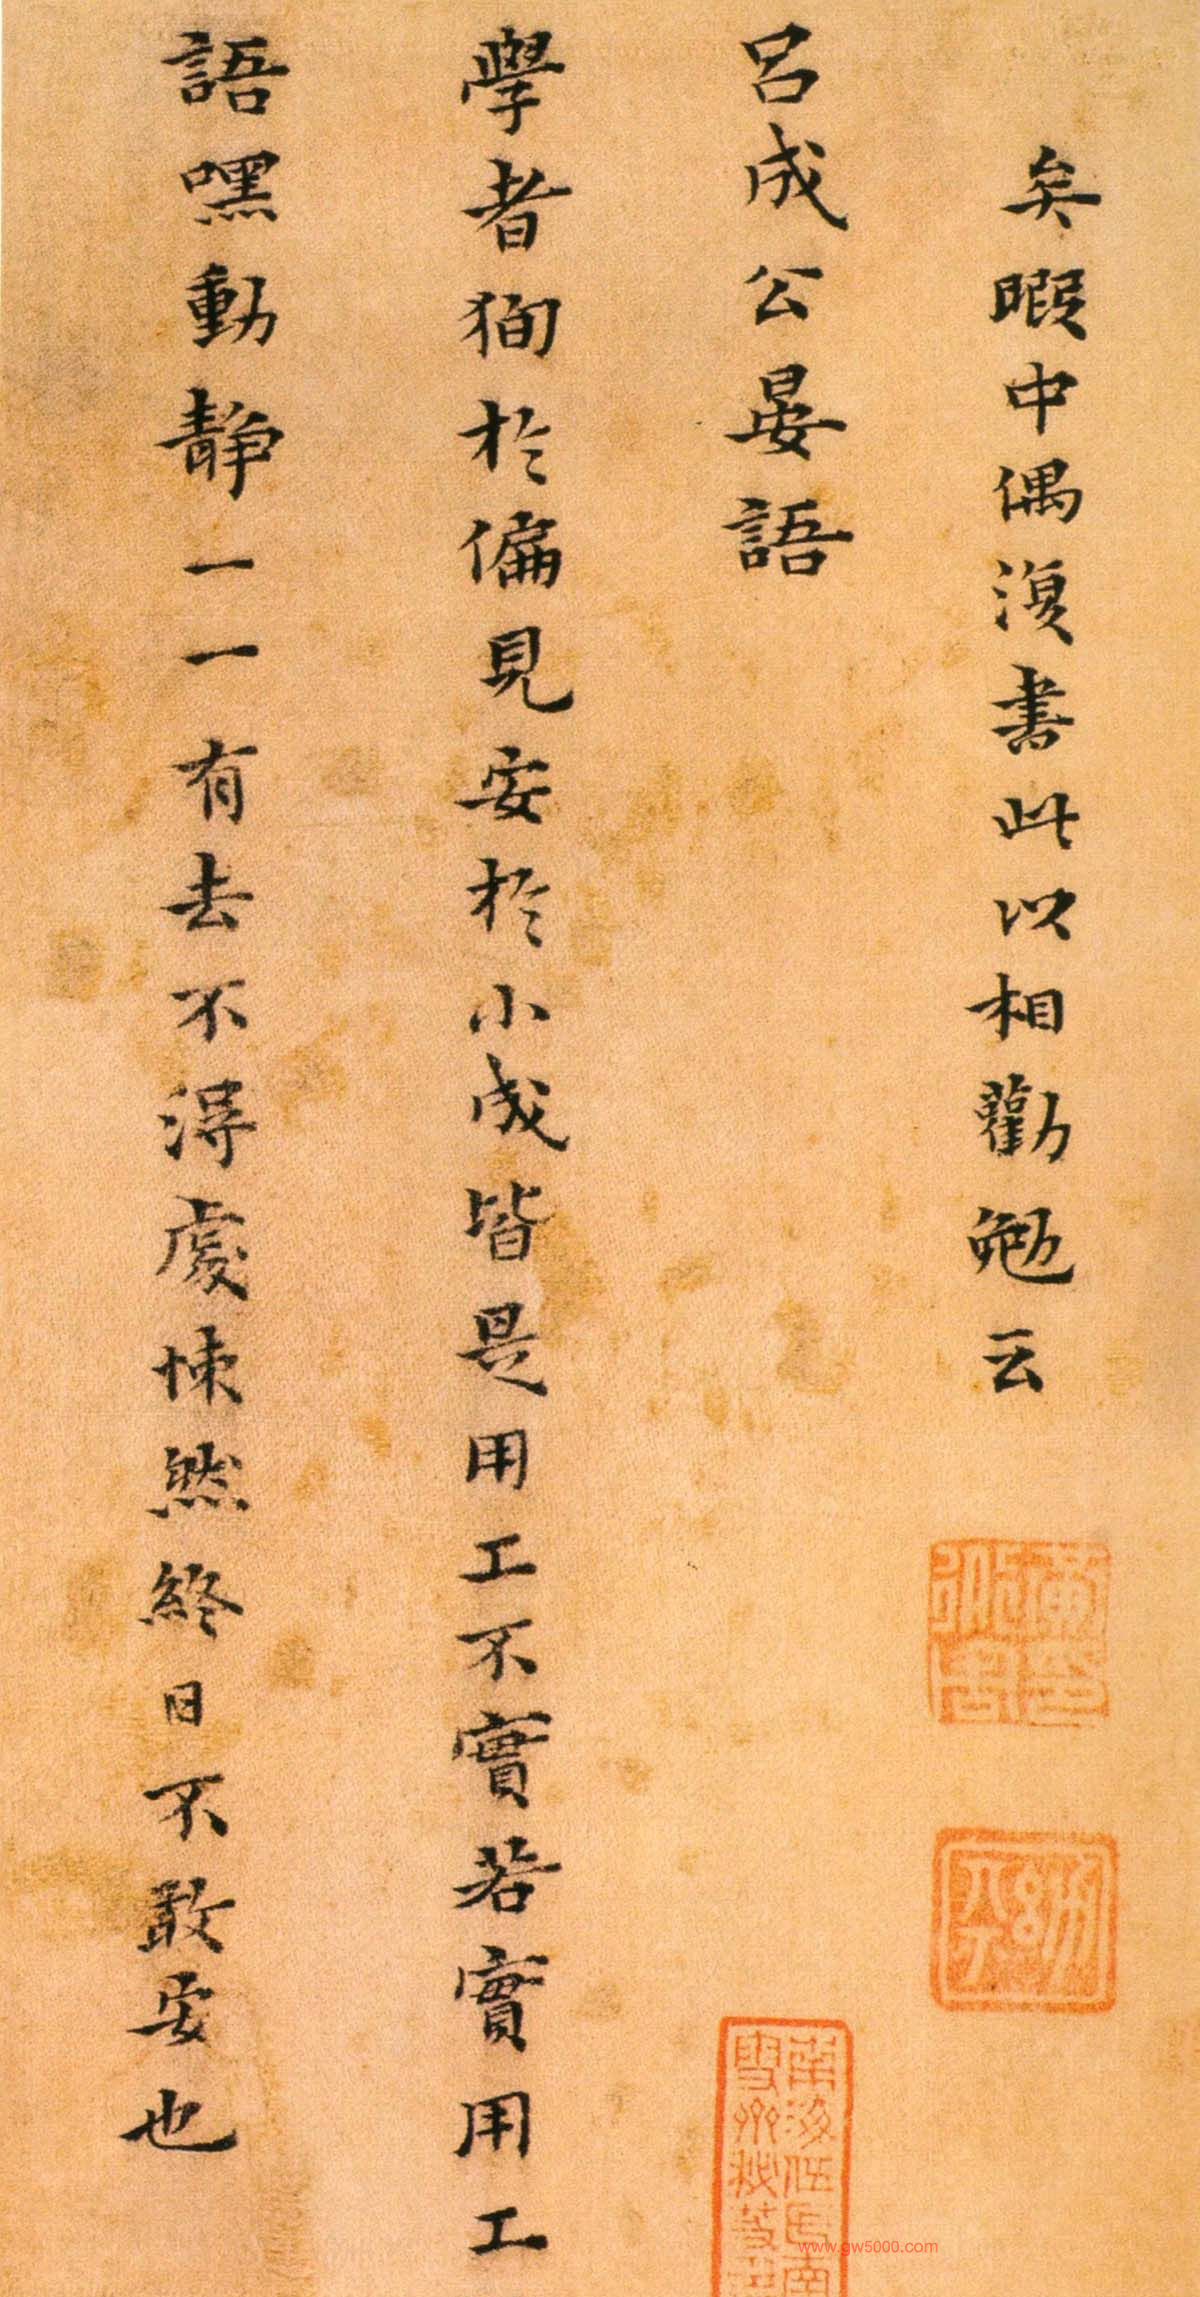 矣暇中偶復書此以相勸勉云
呂成公晏語
學者狥於偏見安於小成皆是用工不實若實用工
語嘿動靜一一有去不得處悚然終日不敢安也
南海伍氏南
雪齋秘笈印
www.gw5000.com